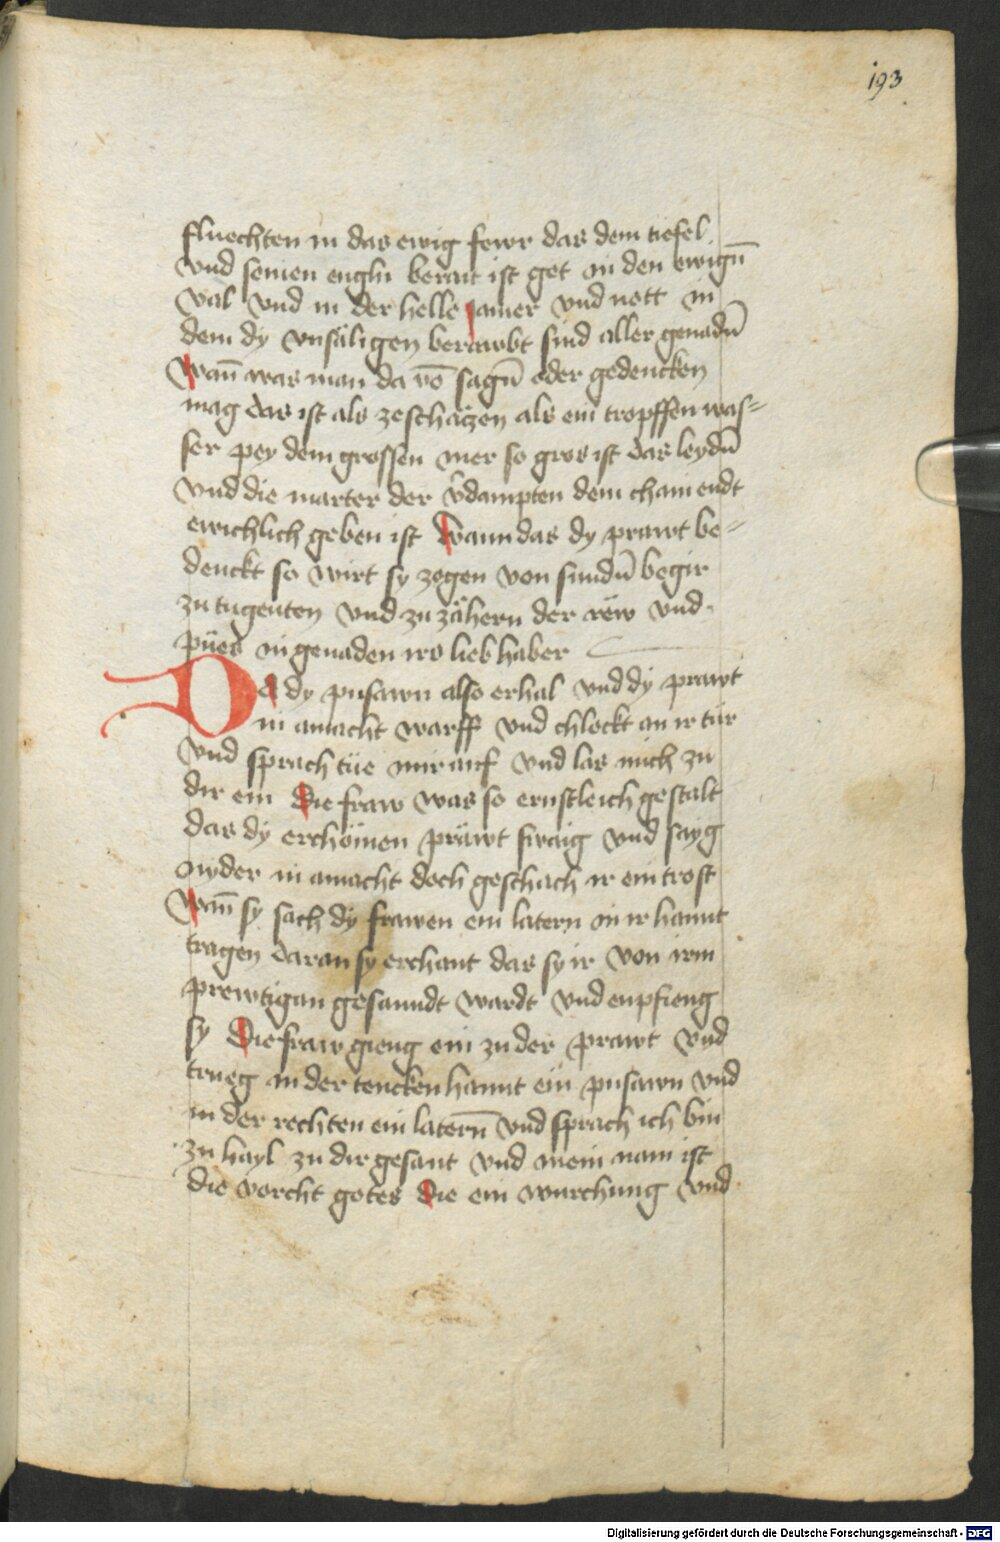 193
fluechten in das ewig fewr das dem tiefel
vnd seinen engln berait ist get in den ewign̄
val vnd in der helle jamer vnd nott in
dem dy vnsäligen berawbt sind aller genadn̄
wan̄ was man da vō sagn̄ oder gedencken
mag das ist als zeschäczen als ein tropffen was=
ser pey dem grossen mer so gros ist das leydn̄
vnd die marter der v̄dampten dem cham endt
ewichlich geben ist wann das dy prawt be=
denckt so wirt sy zogen von sundn̄ begir
zu tugenten vnd zu zähern der rëw vnd
pües in genaden irs liebhaber
Da dy pusawn also erhal vnd dy prawt
in amacht warff vnd chlockt an ir tür
vnd sprach tüe mir auf vnd las mich zu
dir ein Die fraw was so ernstleich gestalt
das dy erchömen präwt swaig vnd sayg
nyder in amacht doch geschach ir ein trost
wan̄ sy sach dy frawen ein latern in ir hannt
tragen daran sy erchant das sy ir von irm
prewtigan gesanndt wardt vnd enpfieng
sy Die fraw gieng ein zu der prawt vnd
trueg in der tencken hannt ein pusawn vnd
in der rechten ein latern̄ vnd sprach ich bin
zu hayl zu dir gesant vnd mein nam ist
die vorcht gotes Die ein wurchung vnd
Digitalisierung gefördert durch die Deutsche Forschungsgemeinschaft - DFG